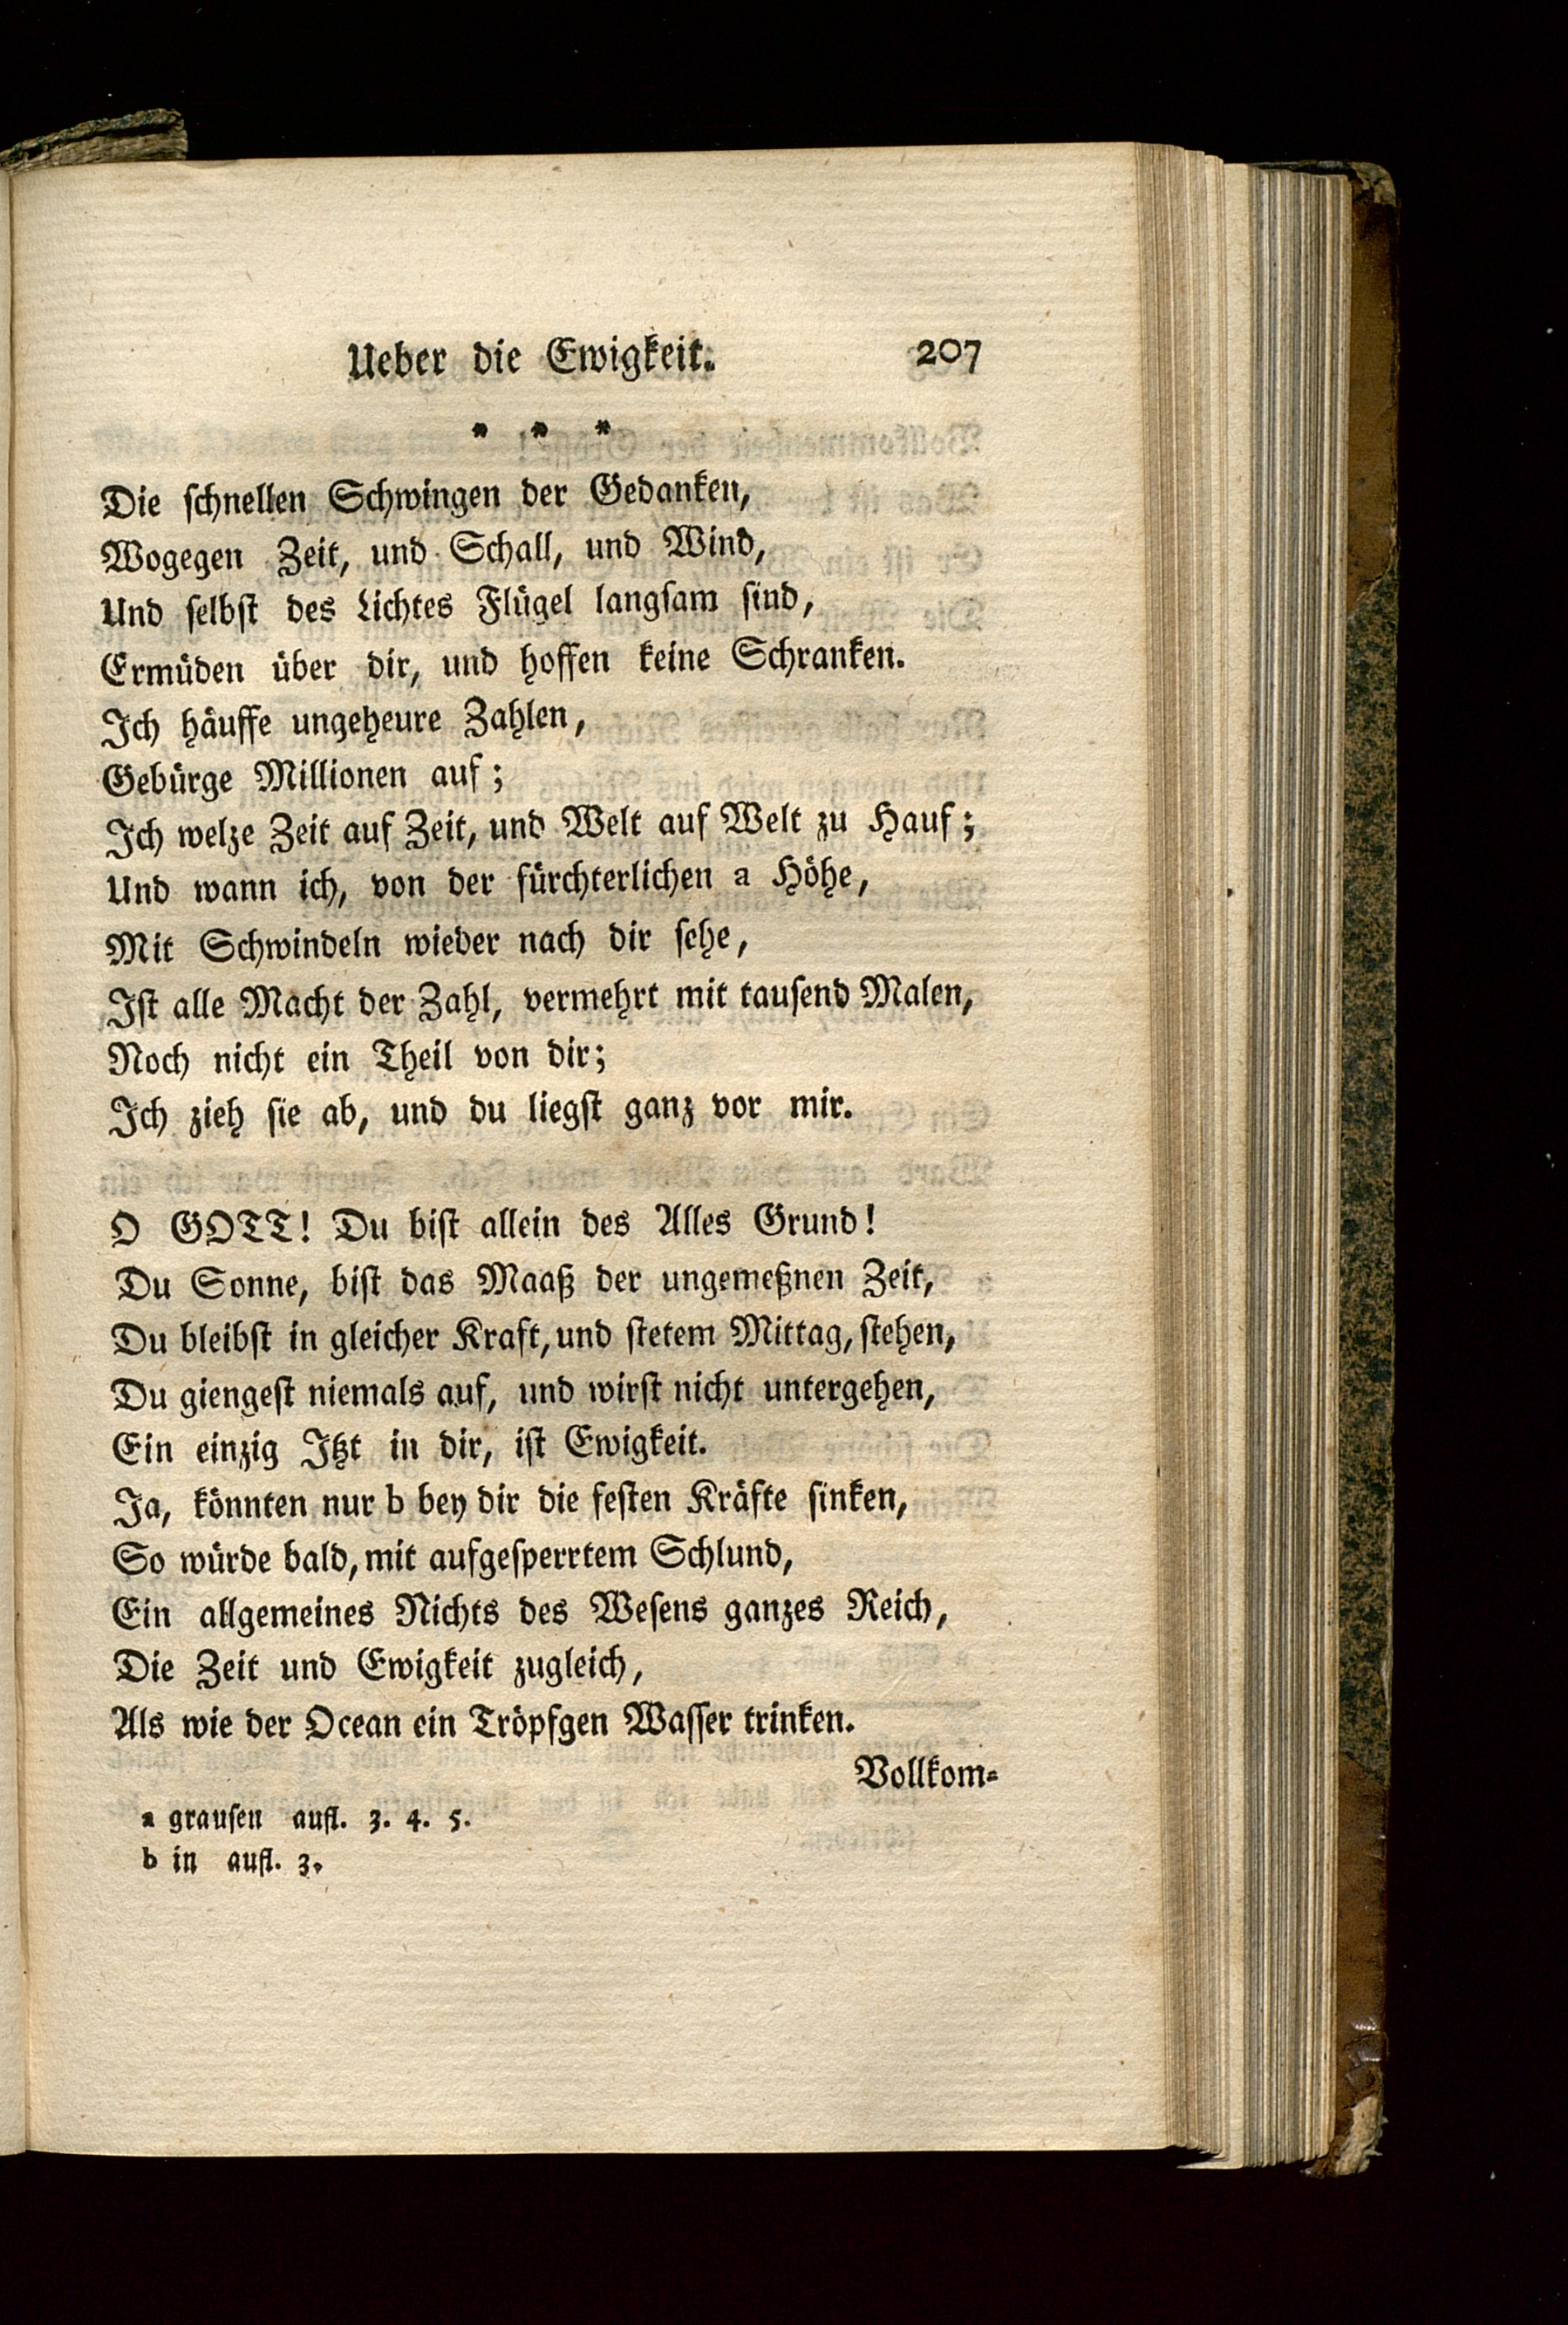 Ueber die Ewigkeit. 207
* * *
Die schnellen Schwingen der Gedanken,
Wogegen Zeit, und Schall, und Wind,
Und selbst des Lichtes Flügel langsam sind,
Ermüden über dir, und hoffen keine Schranken.
Ich häuffe ungeheure Zahlen,
Gebürge Millionen auf;
Ich welze Zeit auf Zeit, und Welt auf Welt zu Hauf;
Und wann ich, von der fürchterlichen a Höhe,
Mit Schwindeln wieder nach dir sehe,
Ist alle Macht der Zahl, vermehrt mit tausend Malen,
Noch nicht ein Theil von dir;
Ich zieh sie ab, und du liegst ganz vor mir.
O GOTT! Du bist allein des Alles Grund!
Du Sonne, bist das Maaß der ungemeßnen Zeit,
Du bleibst in gleicher Kraft, und stetem Mittag, stehen,
Du giengest niemals auf, und wirst nicht untergehen,
Ein einzig Itzt in dir, ist Ewigkeit.
Ja, könnten nur b bey dir die festen Kräfte sinken,
So würde bald, mit aufgesperrtem Schlund,
Ein allgemeines Nichts des Wesens ganzes Reich,
Die Zeit und Ewigkeit zugleich,
Als wie der Ocean ein Tröpfgen Wasser trinken.
Vollkom-
a grausen aufl. 3. 4. 5.
b in aufl. 3.